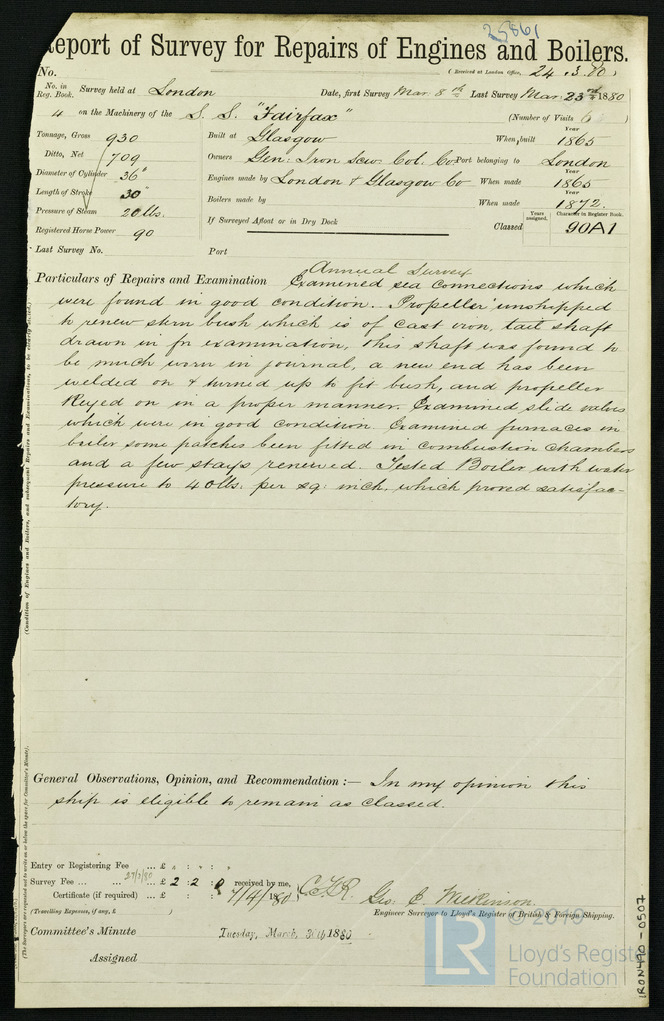 25861
Report of Survey for Repairs of Engines and Boilers.
No. (Received at London Office, 24.3.80)
No. in Reg. Book. Survey held at London Date, first Survey Mar 8th Last Survey Mar 23rd 1880
4 on the Machinery of the S. S. "Fairfax" (Number of Visits 6)
Tonnage, Gross 930 Built at Glasgow When built Year 1865
Ditto, Net 709 Owners Gen: Iron Scw. Col. Co Port belonging to London
Diameter of Cylinder 36" Engines made by London & Glasgow Co When made Year 1865
Length of Stroke 30" Boilers made by When made Year 1872.
Pressure of Steam 20 lbs. If Surveyed Afloat or in Dry Dock Classed Years assigned. Character in Register Book. 90A1
Registered Horse Power 90
Last Survey No. Port
Annual Survey
Particulars of Repairs and Examination Examined sea connections which
were found in good condition. Propeller unshipped
to renew stern bush which is of cast iron, tail shaft
drawn in for examination, this shaft was found to
be much worn in journal, a new end has been
welded on & turned up to fit bush, and propeller
keyed on in a proper manner. Examined slide valves
which were in good condition Examined furnaces in
boiler some patches been fitted in combustion chambers
and a few stays renewed. Tested Boiler with water
pressure to 40 lbs. per sq: inch, which proved satisfac-
tory.
(Condition of Engines and Boilers, and subsequent Repairs and Examinations, to be clearly stated.)
General Observations, Opinion, and Recommendation :— In my opinion this
ship is eligible to remain as Classed.
(The Surveyors are requested not to write on or below the space for Committee's Minute).
Entry or Registering Fee ... £ : :
27/3/80
Survey Fee ... ... ... £ 2 : 2 : 0 received by me, C.H.R.
Certificate (if required) ... £ : : 7/4/1880 Geo: C. Wilkinson.
(Travelling Expenses, if any, £ ) Engineer Surveyor to Lloyd's Register of British & Foreign Shipping.
Committee's Minute Tuesday, March 30th 1880
Assigned
© 2019
LR
Lloyd's Register
Foundation
IRON490-0507